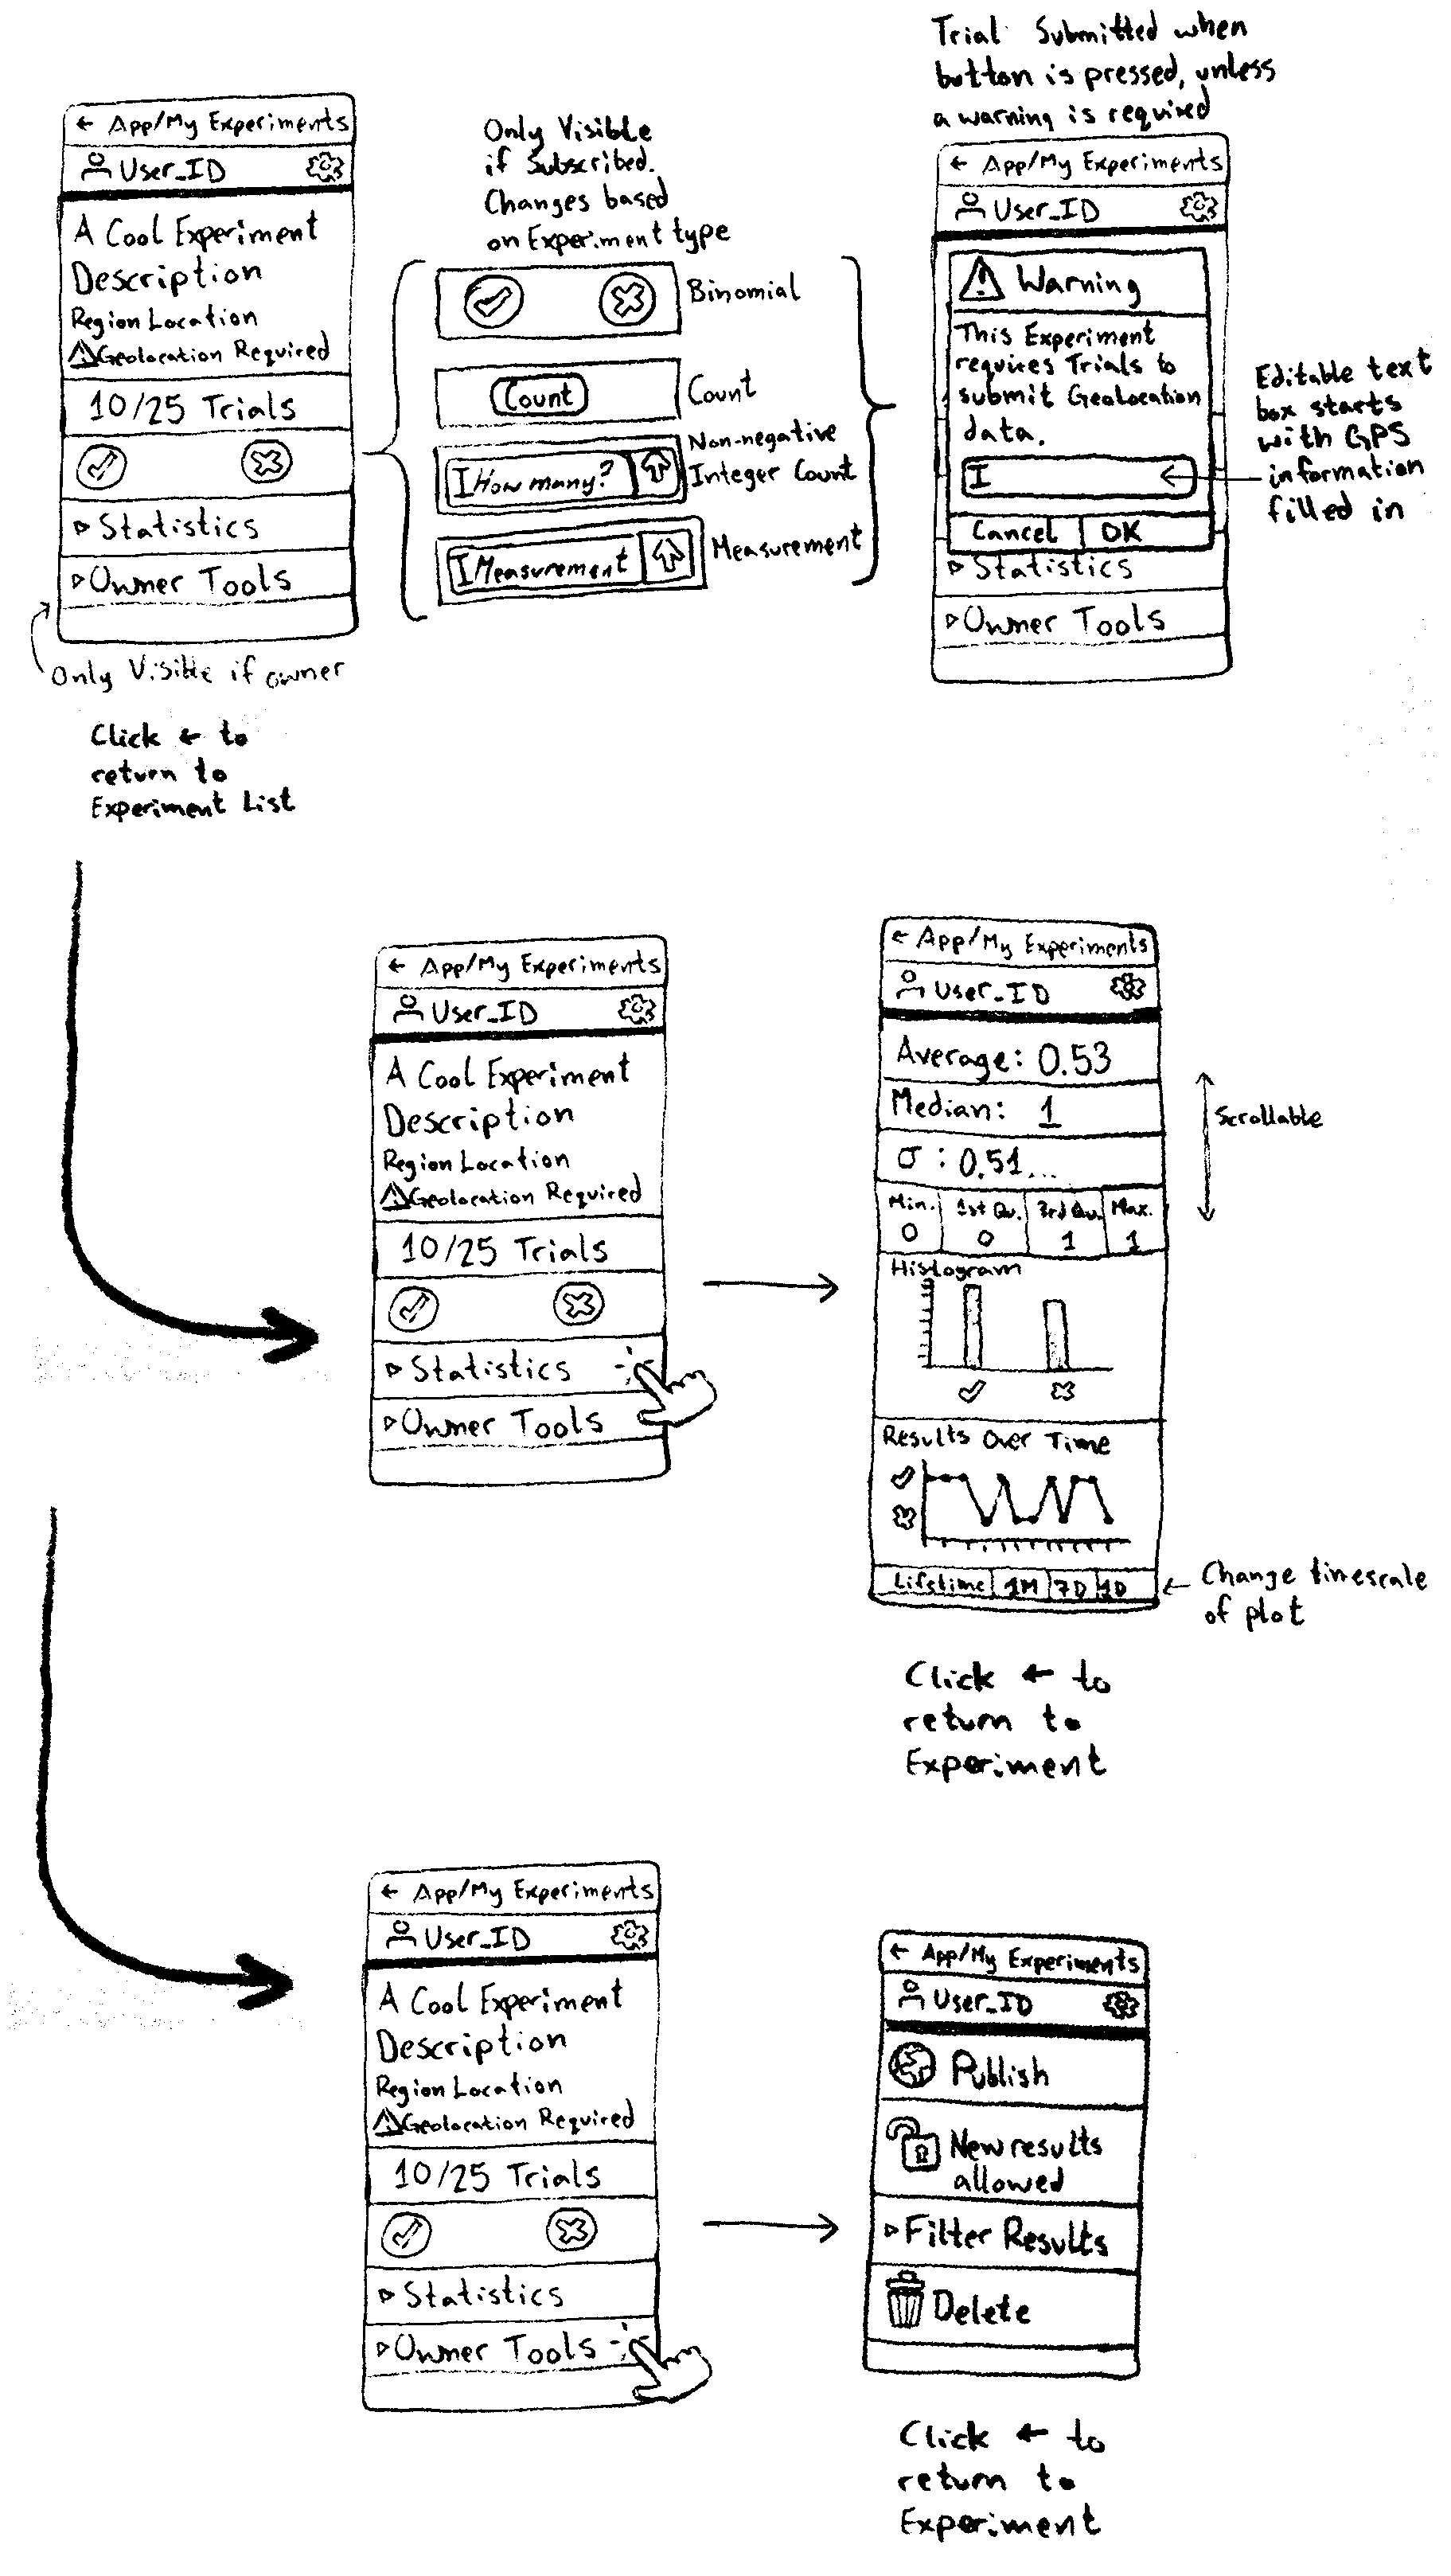 ← App/My Experiments
User_ID
A Cool Experiment
Description
Region Location
Geolocation Required
10/25 Trials
▹ Statistics
▹ Owner Tools
Only Visible if owner
Click ← to
return to
Experiment List
Only Visible
if Subscribed.
Changes based
on Experiment type
Binomial
Count
Count
I How many?
Non-negative
Integer Count
I Measurement
Measurement
Trial Submitted when
button is pressed, unless
a warning is required
← App/My Experiments
User_ID
Warning
This Experiment
requires Trials to
submit Geolocation
data.
I
Cancel OK
▹ Statistics
▹ Owner Tools
Editable text
box starts
with GPS
information
filled in
← App/My Experiments
User_ID
A Cool Experiment
Description
Region Location
Geolocation Required
10/25 Trials
▹ Statistics
▹ Owner Tools
← App/My Experiments
User_ID
Average: 0.53
Median: 1
σ : 0.51...
Min. 1st Qu. 3rd Qu. Max.
0 0 1 1
Histogram
Results Over Time
Lifetime 1M 7D 1D
Scrollable
← Change timescale
of plot
Click ← to
return to
Experiment
← App/My Experiments
User_ID
A Cool Experiment
Description
Region Location
Geolocation Required
10/25 Trials
▹ Statistics
▹ Owner Tools
← App/My Experiments
User_ID
Publish
New results
allowed
▹ Filter Results
Delete
Click ← to
return to
Experiment